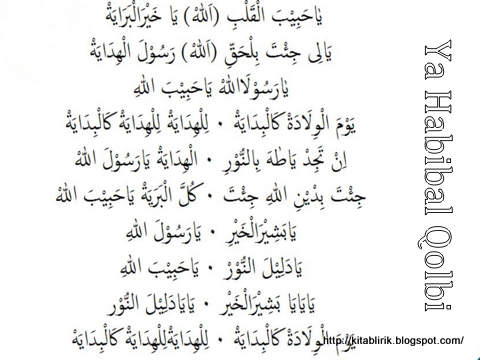 يٰاحَبِيْبَ الْقَلْبِ (اَللهْ) يَا خَيْرَالْبَرَايَةْ
يَالِى جِئْتَ بِلْحَقِّ (اَللهْ) رَسُوْلَ الْهِدَايَةْ
يٰارَسُوْلَاللهْ يَاحَبِيْبَ اللهِ
يَوْمَ الْوِلَادَةْ كَالْبِدَايَةْ · لِلْهِدَايَةْ لِلْهِدَايَةْ كَالْبِدَايَةْ
اِنْ تَجِدْ يَاطَهَ بِالنُّوْرِ · الْهِدَايَةْ يَارَسُوْلَ اللهْ
جِئْتَ بِدْيْنِ اللهِ جِئْتَ · كُلَّ الْبَرَيَةْ يَاحَبِيْبَ اللهْ
يَابَشِيْرَالْخَيْرِ · يَارَسُوْلَ اللهِ
يَادَلِيْلَ النُّوْرْ · يَاحَبِيْبَ اللهِ
يَايَايَا بَشِيْرَالْخَيْرْ · يَايَادَلِيْلَ النُّوْر
يَوْمَ الْوِلَادَةْ كَالْبِدَايَةْ · لِلْهِدَايَةْلِلْهِدَايَةْ كَالْبِدَايَةْ
Ya Habibal Qolbi
http://kitablirik.blogspot.com/